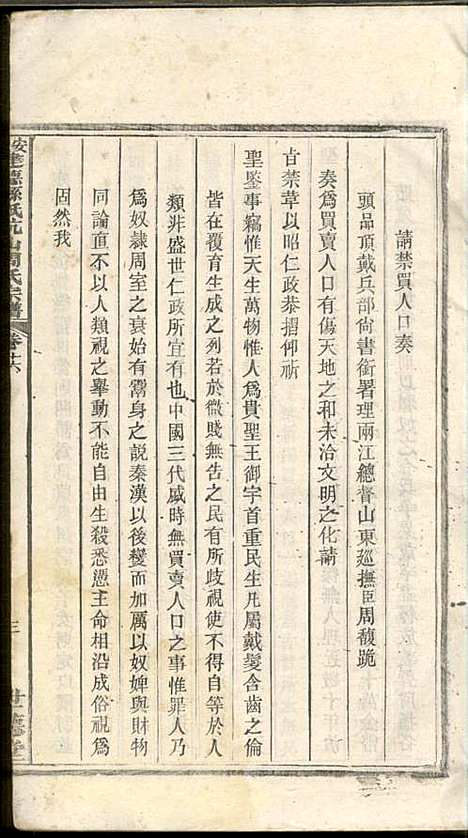 請禁買人口奏
頭品頂戴兵部尙書銜署理兩江總督山東巡撫臣周馥跪
奏爲買賣人口有傷天地之和未洽文明之化請
旨禁革以昭仁政恭摺仰祈
聖鑒事竊惟天生萬物惟人爲貴聖王御宇首重民生凡屬戴髮含齒之倫
皆在覆育生成之列若於微賤無吿之民有所歧視使不得自等於人
類非盛世仁政所宜有也中國三代盛時無買賣人口之事惟罪人乃
爲奴隸周室之衰始有鬻身之說秦漢以後變而加厲以奴婢與財物
同論直不以人類視之舉動不能自由生殺悉憑主命相沿成俗視爲
固然我
建德縣紙坑山周氏宗譜
卷十六
三